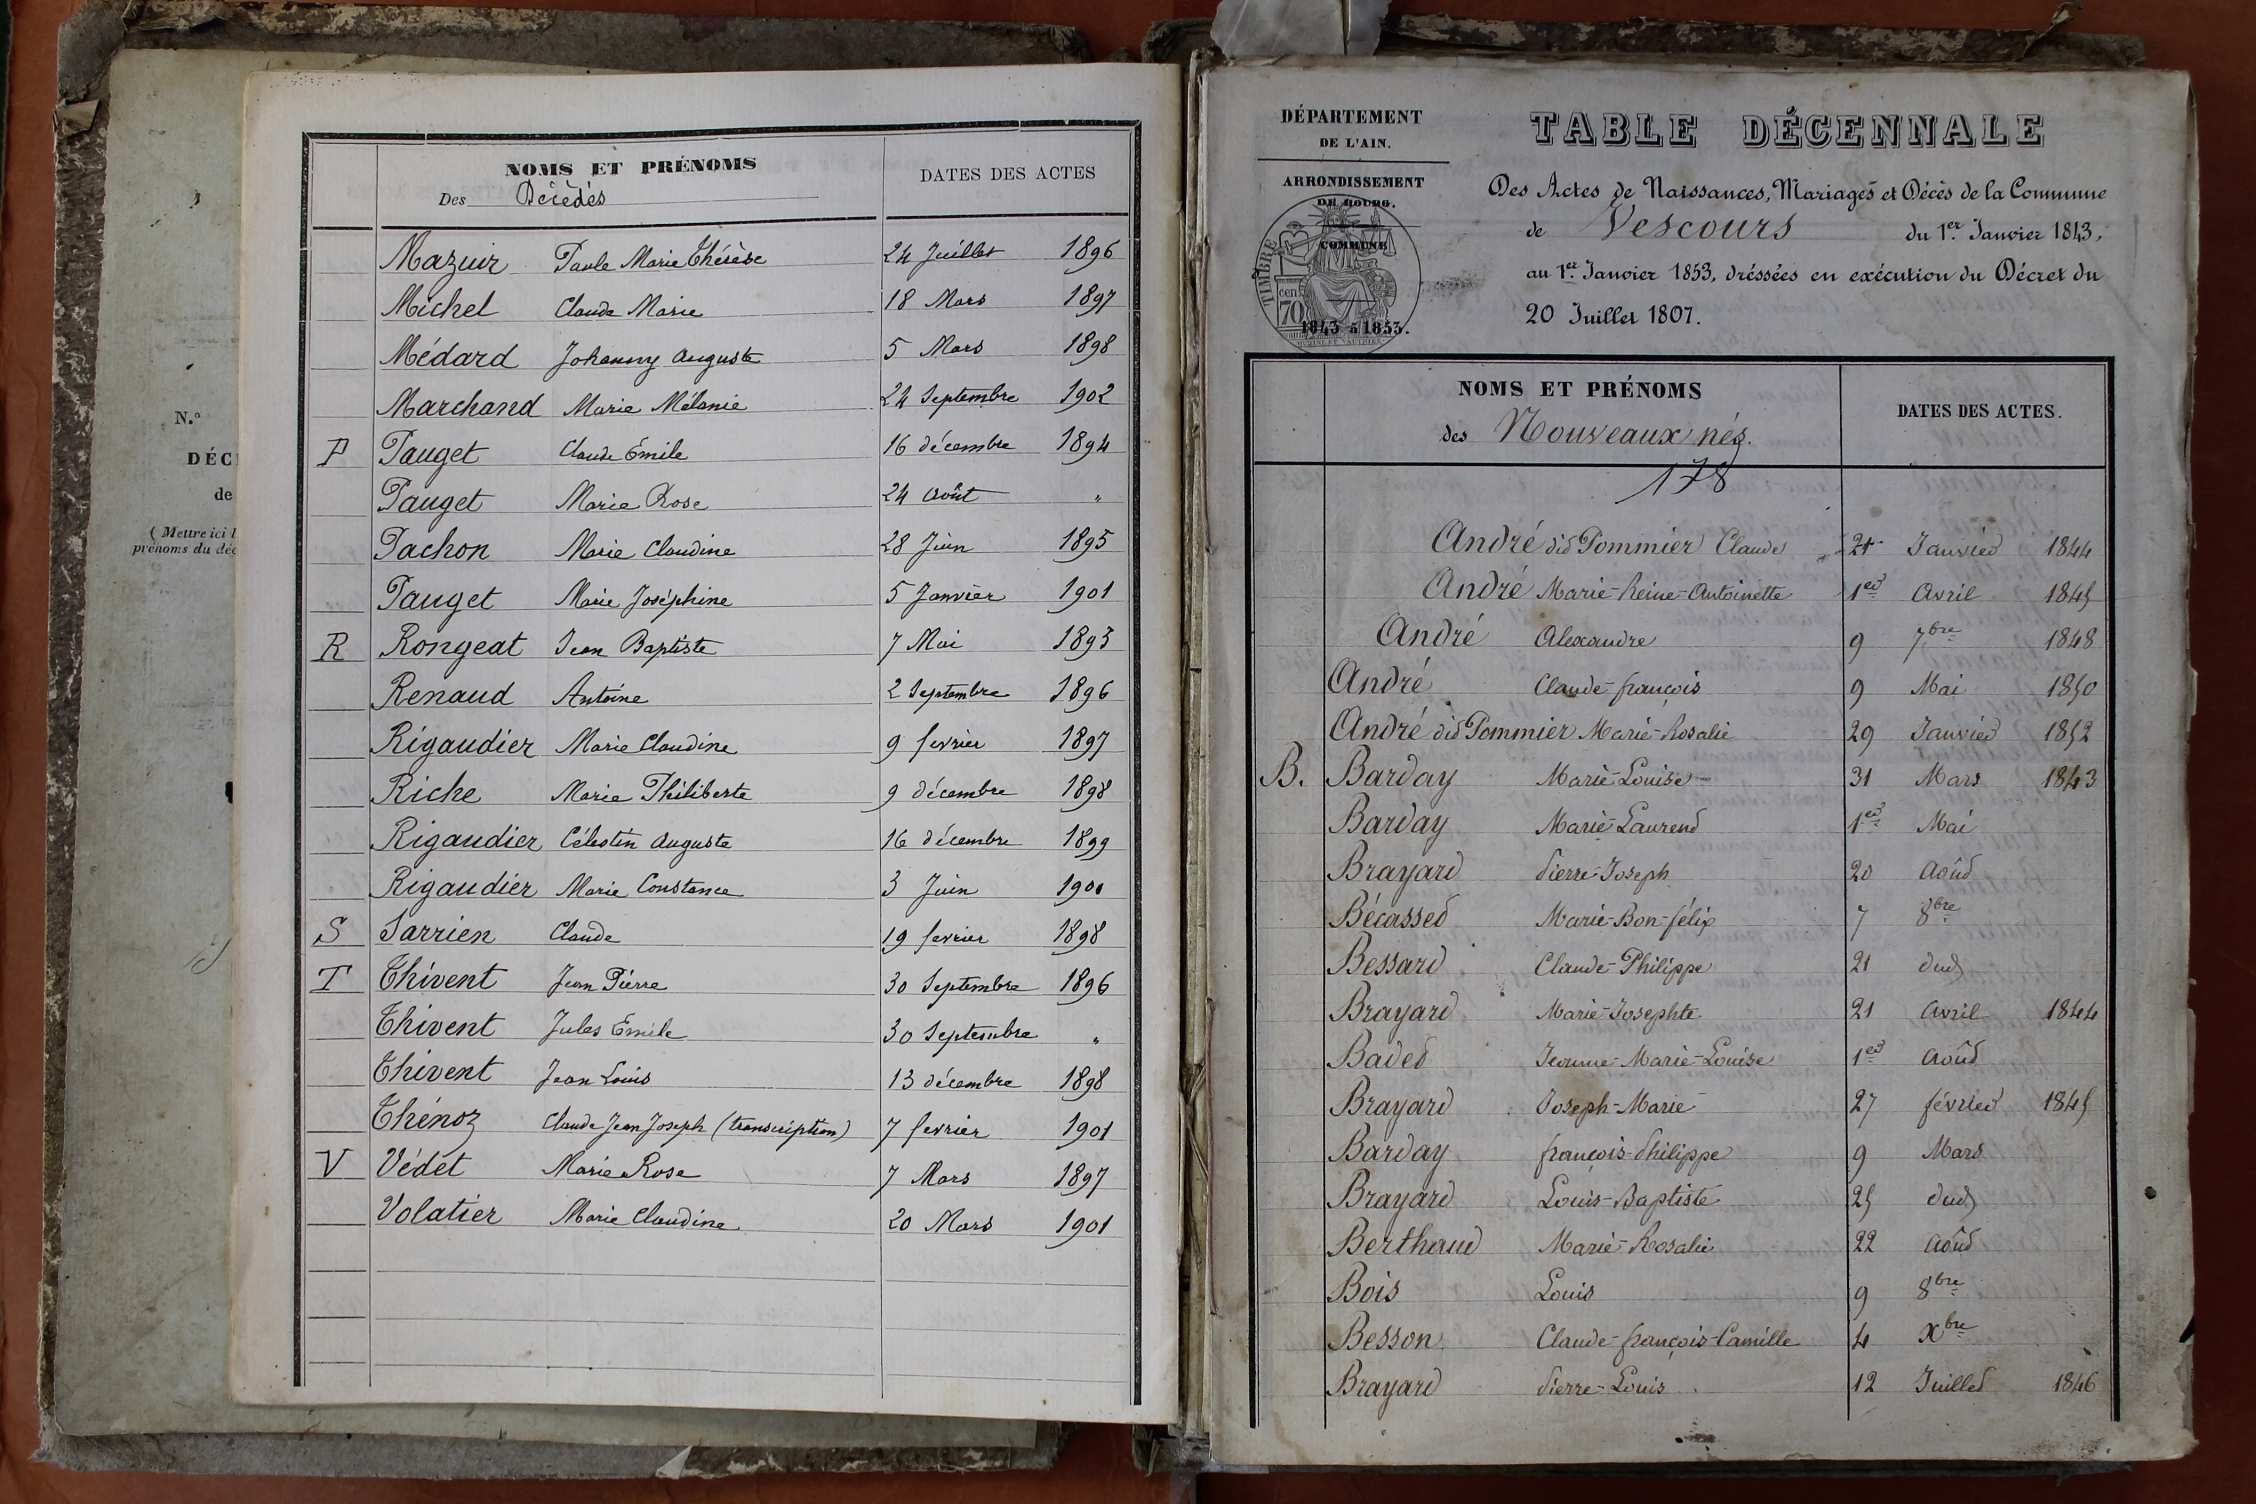 N.º
DÉC
de
( Mettre ici l
prénoms du déc
NOMS ET PRÉNOMS
Des Décèdés
DATES DES ACTES
Mazuir Paule Marie Thérèse 24 Juillet 1896
Michel Claude Marie 18 Mars 1897
Médard Johanny Auguste 5 Mars 1898
Marchand Marie Mélanie 24 Septembre 1902
P Pauget Claude Émile 16 décembre 1894
Pauget Marie Rose 24 Août "
Pachon Marie Claudine 28 Juin 1895
Pauget Marie Joséphine 5 Janvier 1901
R Rongeat Jean Baptiste 7 Mai 1893
Renaud Antoine 2 Septembre 1896
Rigaudier Marie Claudine 9 fevrier 1897
Riche Marie Philiberte 9 décembre 1898
Rigaudier Célestin Auguste 16 décembre 1899
Rigaudier Marie Constance 3 Juin 1900
S Sarrien Claude 19 fevrier 1898
T Thivent Jean Pierre 30 Septembre 1896
Thivent Jules Emile 30 Septembre "
Thivent Jean Louis 13 décembre 1898
Thénoz Claude Jean Joseph (transcription) 7 fevrier 1901
V Védet Marie Rose 7 Mars 1897
Volatier Marie Claudine 20 Mars 1901
DÉPARTEMENT
DE L'AIN.
ARRONDISSEMENT
DE BOURG.
COMMUNE
TIMBRE
cent
70
1843 à 1853.
TABLE DÉCENNALE
Des Actes de Naissances, Mariages et Décès de la Commune
de Vescours du 1er Janvier 1843,
au 1er Janvier 1853, dréssées en exécution du Décret du
20 Juillet 1807.
NOMS ET PRÉNOMS
des Nouveaux nés.
DATES DES ACTES.
178
André dit Pommier Claude 21 Janvier 1844
André Marie-Reine-Antoinette 1er Avril 1845
André Alexandre 9 7bre 1848
André Claude-françois 9 Mai 1850
André dit Pommier Marie-Rosalie 29 Janvier 1852
B. Barday Marie-Louise 31 Mars 1843
Barday Marie-Laurent 1er Mai
Brayard Pierre-Joseph 20 Août
Bécasset Marie-Bon-félix 7 8bre
Bessard Claude-Philippe 21 dud
Brayard Marie-Josephte 21 Avril 1844
Badet Jeanne-Marie-Louise 1er Août
Brayard Joseph-Marie 27 février 1845
Barday françois-Philippe 9 Mars
Brayard Louis-Baptiste 25 dud
Berthaud Marie-Rosalie 22 Août
Bois Louis 9 8bre
Besson Claude-françois-Camille 4 Xbre
Brayard Pierre-Louis 12 Juillet 1846